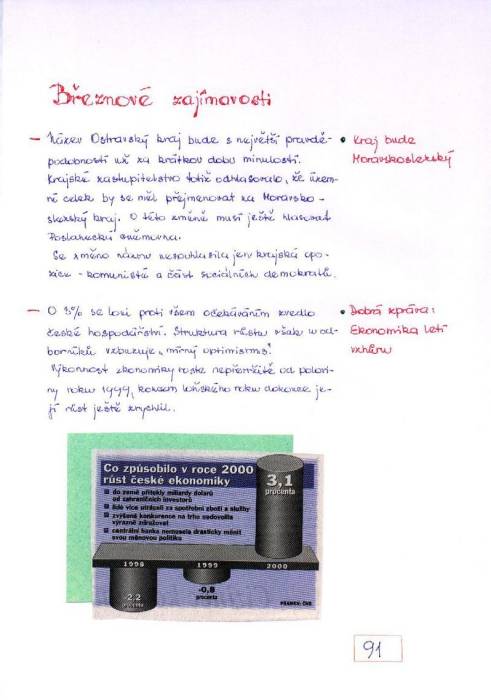 Březnové zajímavosti
– Název Ostravský kraj bude s největší pravdě-
podobností už za krátkou dobu minulostí.
Krajské zastupitelstvo totiž odhlasovalo, že územ-
ní celek by se měl přejmenovat na Moravsko-
slezský kraj. O této změně musí ještě hlasovat
Poslanecká sněmovna.
Se změnou názvu nesouhlasila jen krajská opo-
zice - komunisté a část sociálních demokratů.
• Kraj bude
Moravskoslezský
– O 3% se loni proti všem očekáváním zvedlo
české hospodářství. Struktura růstu však u od-
borníků vzbuzuje „mírný optimismus".
Výkonnost ekonomiky roste nepřetržitě od polovi-
ny roku 1999, koncem loňského roku dokonce je-
jí růst ještě zrychlil.
• Dobrá zpráva:
Ekonomika letí
vzhůru
Co způsobilo v roce 2000
růst české ekonomiky
do země přitekly miliardy dolarů
od zahraničních investorů
lidé více utráceli za spotřební zboží a služby
zvýšená konkurence na trhu nedovolila
výrazně zdražovat
centrální banka nemusela drasticky měnit
svou měnovou politiku
3,1
procenta
1998
1999
2000
-2,2
procenta
-0,8
procenta
PRAMEN: ČSÚ
91